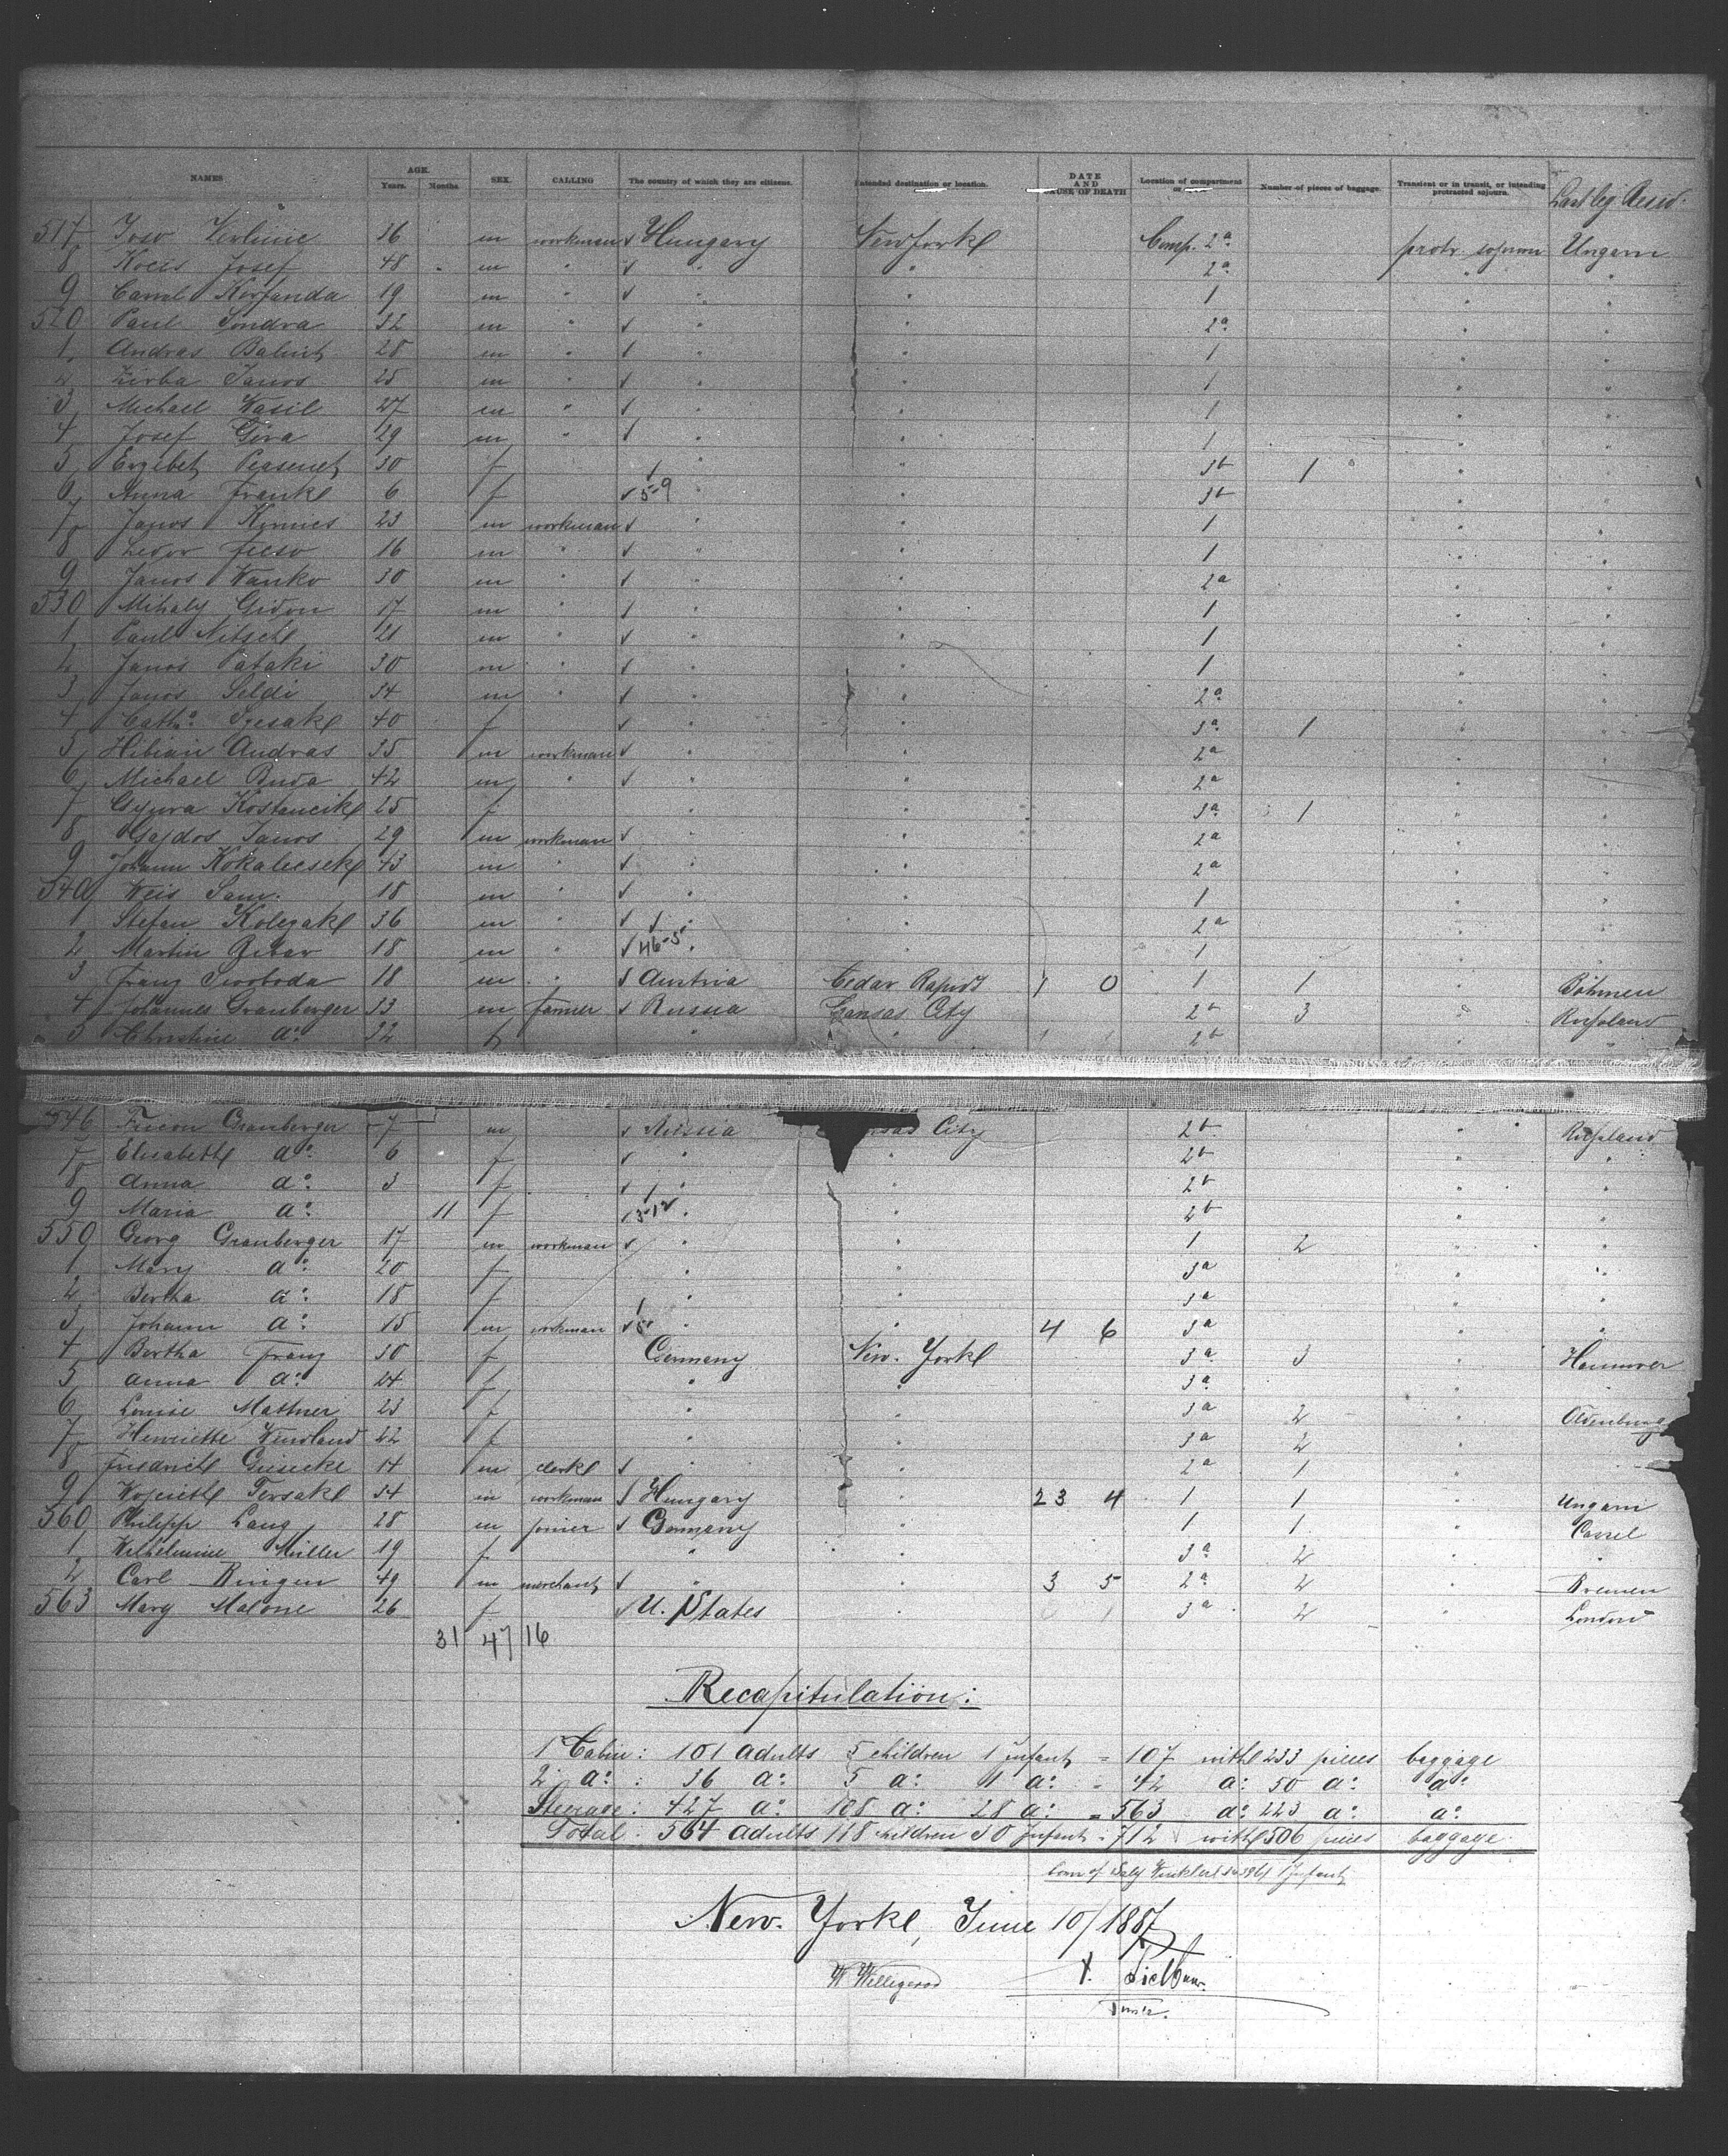 NAMES AGE. Years. Months. SEX. CALLING The country of which they are citizens. Intended destination or location. DATE AND CAUSE OF DEATH Location of compartment Number of pieces of baggage. Transient or in transit, or intending protracted sojourn. Last leg. Resid.
517 26 m workman Hungary New York Comp. 2a protr. sojourn Ungarn
8 Josef 48 m " " " 2a " "
9 19 m " " " 1 " "
520 Paul 32 m " " " 2a " "
1 Andras Balint 28 m " " " 1 " "
2 Janos 25 m " " " 1 " "
3 Michael Wasil 27 m " " " 1 " "
4 Josef Gira 29 m " " " 1 " "
5 30 f " " 3b 1 " "
6 Anna Frank 6 f 5-9 " " 3b " "
7 Janos 23 m workman " " 1 " "
8 16 m " " " 1 " "
9 Janos Wanko 30 m " " " 2a " "
530 Mihaly Gidon 17 m " " " 1 " "
1 Paul Nitsch 21 m " " " 1 " "
2 Janos Pataki 30 m " " " 1 " "
3 Janos Seldi 34 m " " " 2a " "
4 Cath. 40 f " " 3a 1 " "
5 Andras 35 m workman " " 2a " "
6 Michael Buda 42 m " " " 2a " "
7 25 f " " 3a 1 " "
8 Gajdos Janos 29 m workman " " 2a " "
9 Johann 43 m " " " 2a " "
540 Weis Sam. 18 m " " " 1 " "
1 Stefan 36 m " " " 2a " "
2 Martin 18 m " 46-5 " " 1 " "
3 Franz Swoboda 18 m " Austria Cedar Rapids 1 0 1 1 " Böhmen
4 Johannes Granberger 33 m farmer Russia Kansas City 2b 3 " Russland
5 Christine do: 32 f " " 2b " "
546 Granberger 7 m Russia Kansas City 2b " Russland
7 Elisabeth do: 6 f " " 2b " "
8 Anna do: 3 f " " 2b " "
9 Maria do: 11 f 3-12 " " 2b " "
550 Georg Granberger 17 m workman " " 1 2 " "
1 Mary do: 20 f " " 3a " "
2 Bertha do: 18 f " " 3a " "
3 Johann do: 15 m workman " " 4 6 3a " "
4 Bertha Franz 30 f Germany New-York 3a 3 " Hannover
5 Anna do: 24 f " " 3a "
6 Louise Mattner 23 f " " 3a 2 " Oldenburg
7 Henriette Wendland 22 f " " 3a 2 "
8 Friedrich Giesecke 14 m clerk " " 2a 1 "
9 34 m workman Hungary " 23 4 1 1 Ungarn
560 Philipp Lang 28 m joiner Germany " 1 1 " Cassel
1 Wilhelmine Müller 19 f " " 3a 2 " "
2 Carl Ringen 49 m merchant " " 3 5 2a 2 " Bremen
563 Mary Malone 26 f U. States " 0 1 3a 2 " London
31 47 16
Recapitulation:
1 Cabin: 101 adults 5 children 1 Infant = 107 with 233 pieces baggage
2 do: : 36 do: 5 do: 1 do: = 42 do: 50 do: do:
Steerage: 427 do: 108 do: 28 do: = 563 do: 223 do: do:
Total: 564 adults 118 children 30 Infants = 712 with 506 pieces baggage
New-York, June 10/1887
W Willigerod